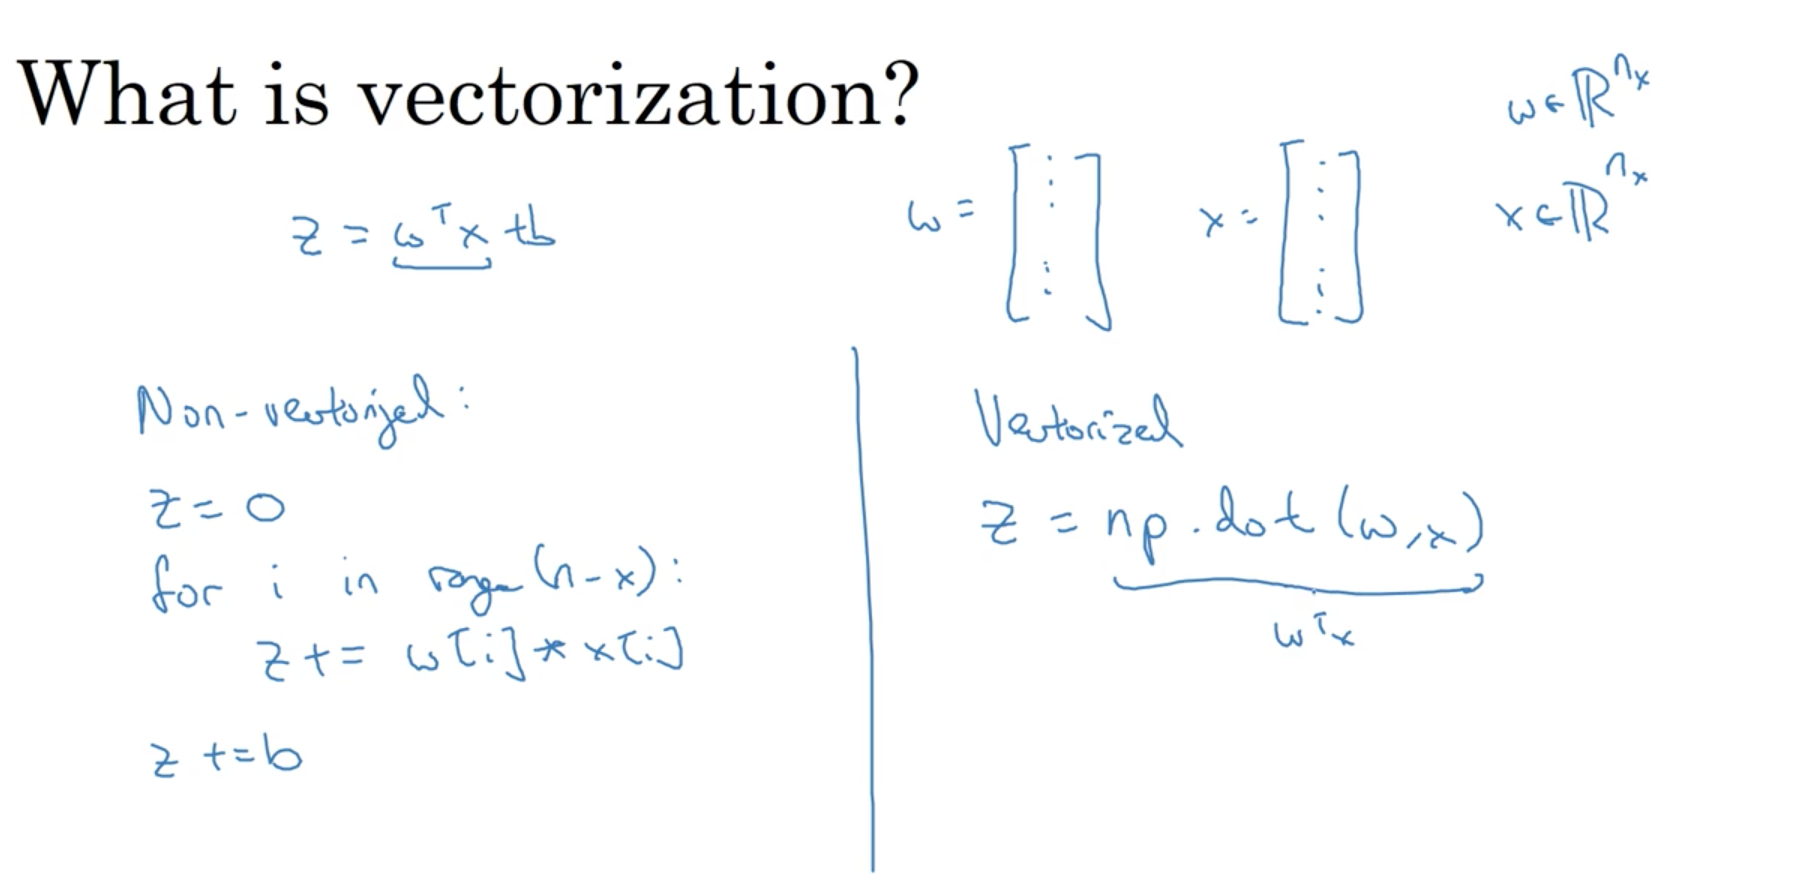 What is vectorization?
z = wᵀx + b
w = [⋮ ⋮]
x = [⋮ ⋮]
w ∈ ℝⁿˣ
x ∈ ℝⁿˣ
Non-vectorized:
z = 0
for i in range(n-x):
z += w[i] * x[i]
z += b
Vectorized
z = np.dot(w,x)
wᵀx